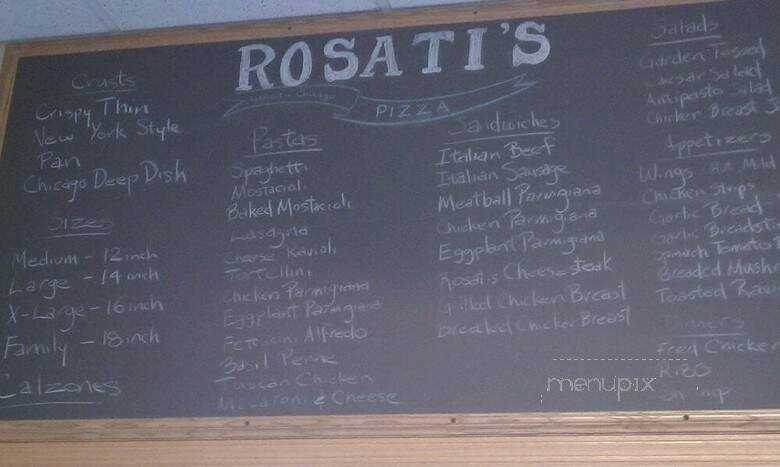 ROSATI'S
PIZZA
Crusts
Crispy Thin
New York Style
Pan
Chicago Deep Dish
Sizes
Medium - 12 inch
Large - 14 inch
X-Large - 16 inch
Family - 18 inch
Calzones
Pastas
Spaghetti
Mostacioli
Baked Mostacioli
Lasagna
Cheese Ravioli
Tortellini
Chicken Parmigiana
Eggplant Parmigiana
Fettuccini Alfredo
Basil Penne
Tuscan Chicken
Macaroni & Cheese
Sandwiches
Italian Beef
Italian Sausage
Meatball Parmigiana
Chicken Parmigiana
Eggplant Parmigiana
Rosati's Cheesesteak
Grilled Chicken Breast
Breaded Chicken Breast
Salads
Garden Tossed
Caesar Salad
Antipasto Salad
Chicken Breast S
Appetizers
Wings Hot Mild
Chicken Strips
Garlic Bread
Garlic Breadsti
Spinach Tomato
Breaded Mushr
Toasted Rav
Dinners
Fried Chicken
Ribs
Shrimp
menupix